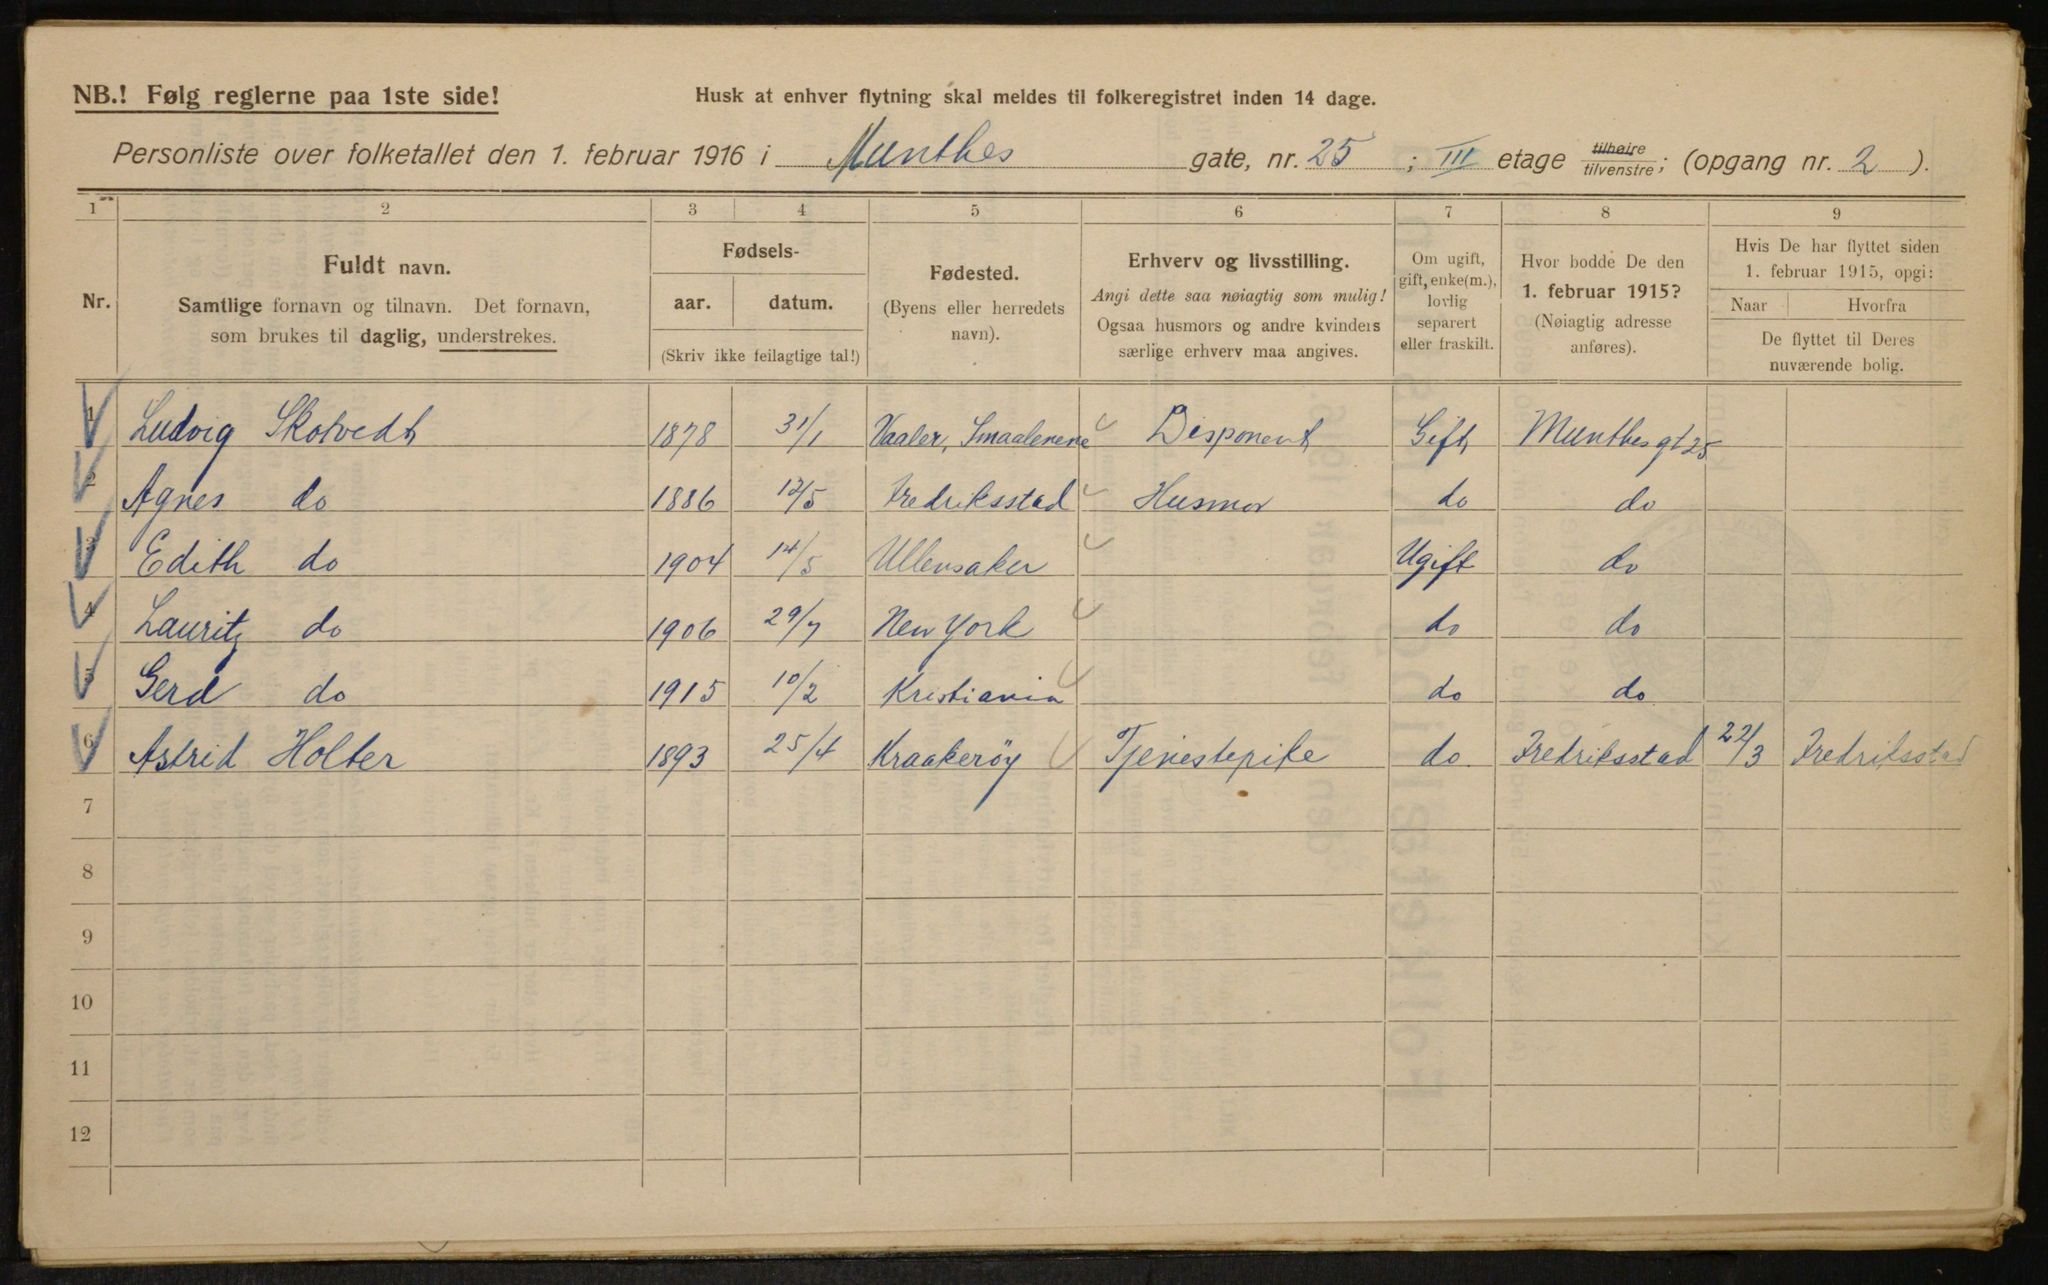 NB.! Følg reglerne paa 1ste side!
Husk at enhver flytning skal meldes til folkeregistret inden 14 dage.
Personliste over folketallet den 1. februar 1916 i Munthes gate, nr. 25 ; III etage tilhøire/tilvenstre; (opgang nr. 2 ).
1 2 3 4 5 6 7 8 9
Nr.
Fuldt navn.
Samtlige fornavn og tilnavn. Det fornavn,
som brukes til daglig, understrekes.
Fødsels-
aar. datum.
(Skriv ikke feilagtige tal!)
Fødested.
(Byens eller herredets
navn).
Erhverv og livsstilling.
Angi dette saa nøiagtig som mulig!
Ogsaa husmors og andre kvinders
særlige erhverv maa angives.
Om ugift,
gift, enke(m.),
lovlig
separert
eller fraskilt.
Hvor bodde De den
1. februar 1915?
(Nøiagtig adresse
anføres).
Hvis De har flyttet siden
1. februar 1915, opgi:
Naar Hvorfra
De flyttet til Deres
nuværende bolig.
1 Ludvig Skotvedt 1878 31/1 Vaaler, Smaalenene Disponent Gift Munthesgt 25
2 Agnes do 1886 12/5 Fredriksstad Husmor do do
3 Edith do 1904 14/5 Ullensaker Ugift do
4 Lauritz do 1906 29/7 New York do do
5 Gerd do 1915 10/2 Kristiania do do
6 Astrid Holter 1893 25/4 Kraakerøy Tjenestepike do Fredriksstad 22/3 Fredriksstad
7
8
9
10
11
12